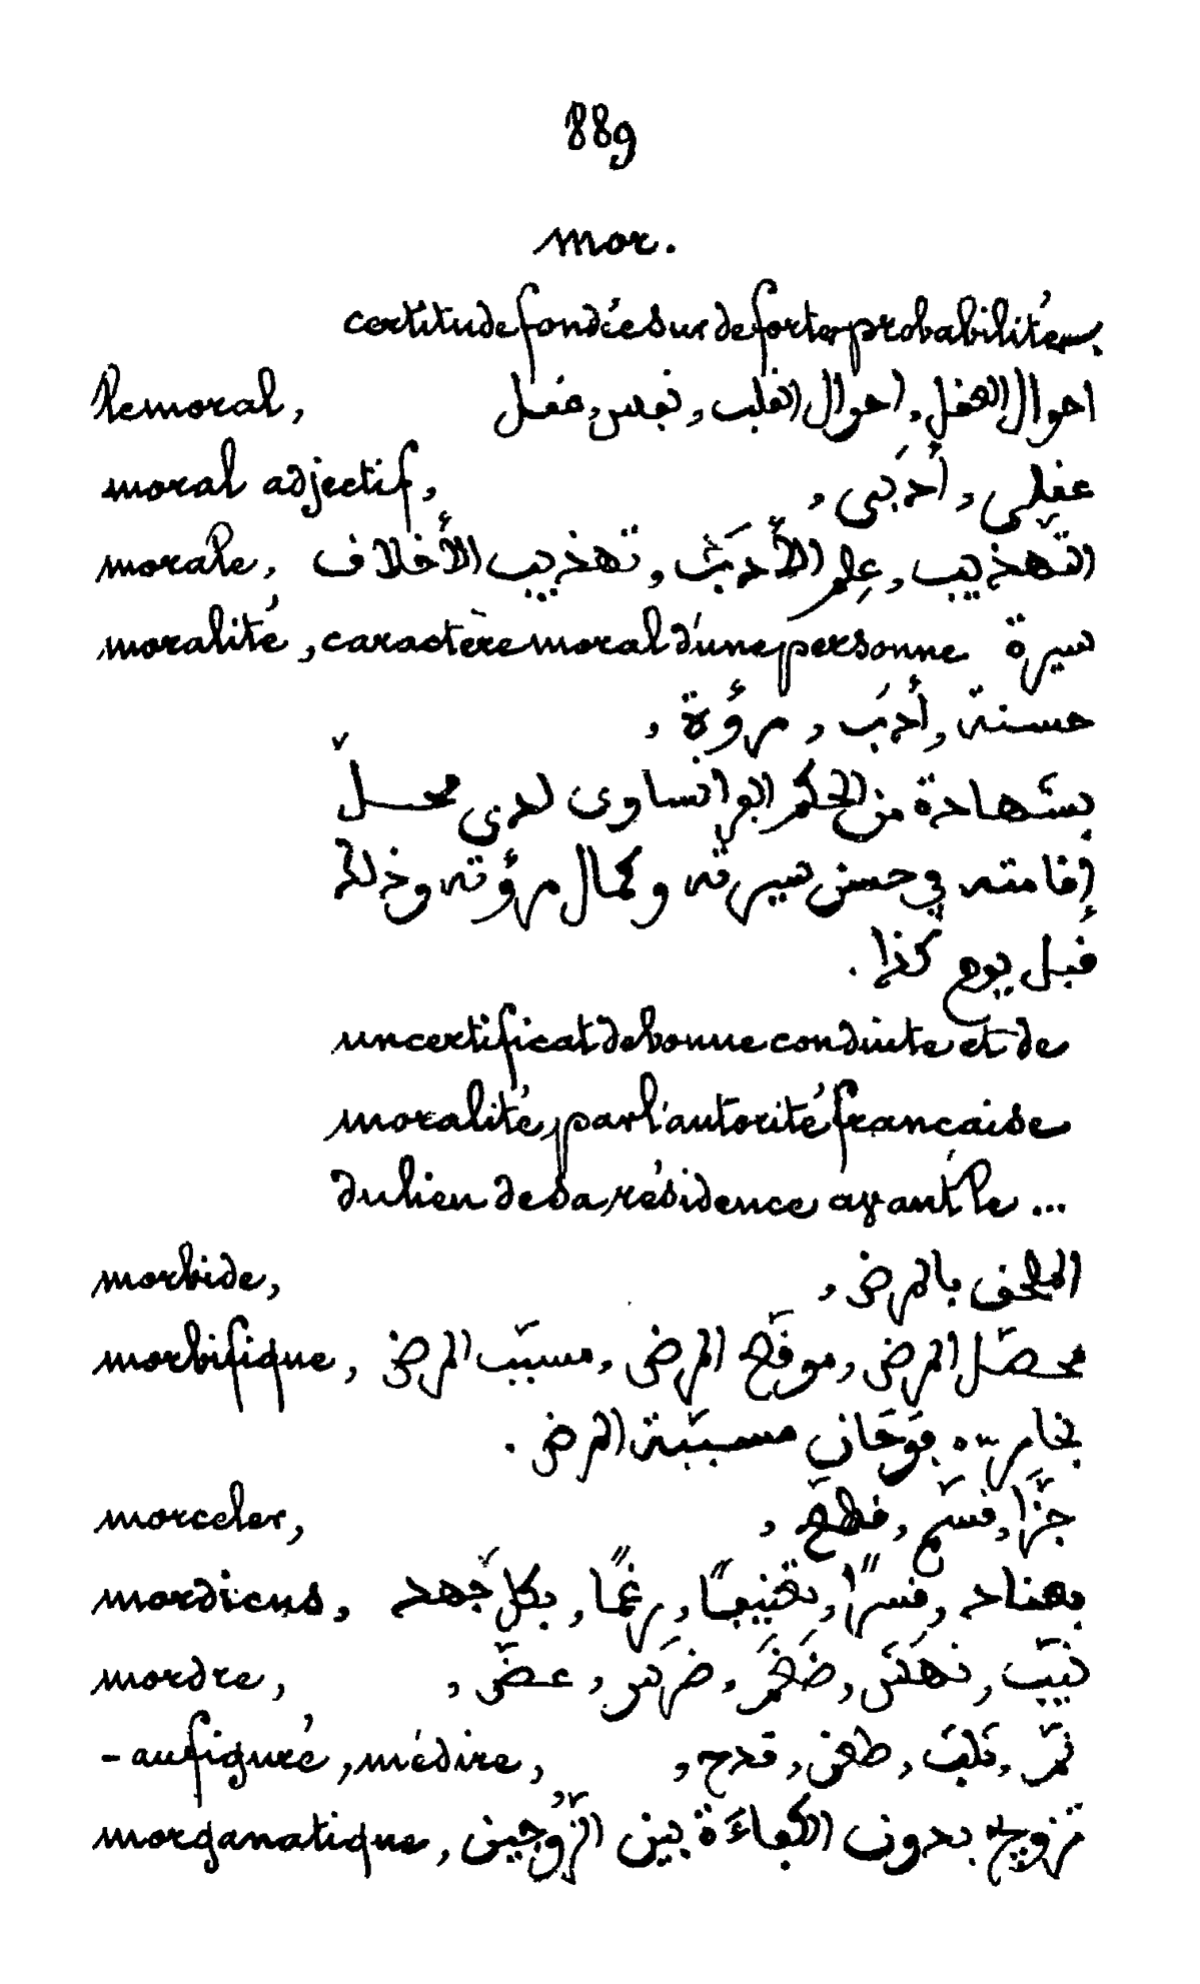 889
mor.
certitude fondée sur de fortes probabilités.
le moral, احوال العقل, احوال القلب, نفس, عقل
moral adjectif, عقلي, أدَبى,
morale, التّهذيب, عِلم الأدَب, تهذيب الأخلاف
moralité, caractère moral d'une personne سيرة
حسنة, أدَب, مرؤة,
بشهادة من الحكم الفرانساوى لدى محلّ
إقامته في حسن سيرته وكمال مرؤته وذلك
قبل يوم كذا.
un certificat de bonne conduite et de
moralité, par l'autorité française
du lieu de sa résidence ayant le ...
morbide, الملحق بالمرض,
morbifique, محصّل المرض, موقّع المرض, مسبّب المرض
بخار ... فَوَحَان مسبّبة المرض.
morceler, جزَّا, قسّم, قطّع,
mordicus, بعناد, قسرًا, تعنيفًا, رغمًا, بكلّ جهد
mordre, نيّب, نهَش, ضَغَم, ضرَس, عضّ,
- au figuré, médire, نمّ, ثَلَبَ, طعن, قدح,
morganatique, تزوج بدون الكفاءَة بين الزّوجين